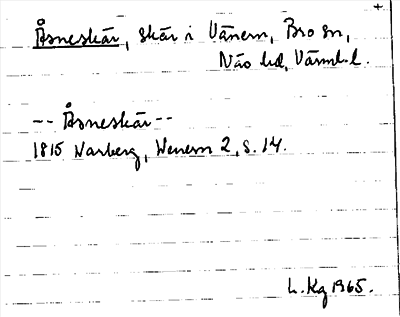 Åsneskär, skär i Vänern, Bro sn,
Näs hd, Värml. l.
-- Åsneskär --
1815 Warberg, Wenern 2, s. 14.
L. Kg 1965.